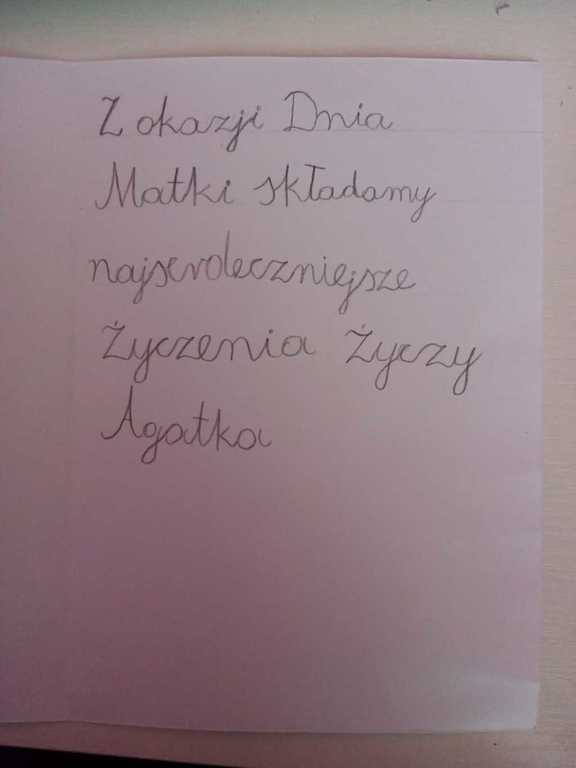 Z okazji Dnia
Matki składamy
najserdeczniejsze
życzenia życzy
Agatka